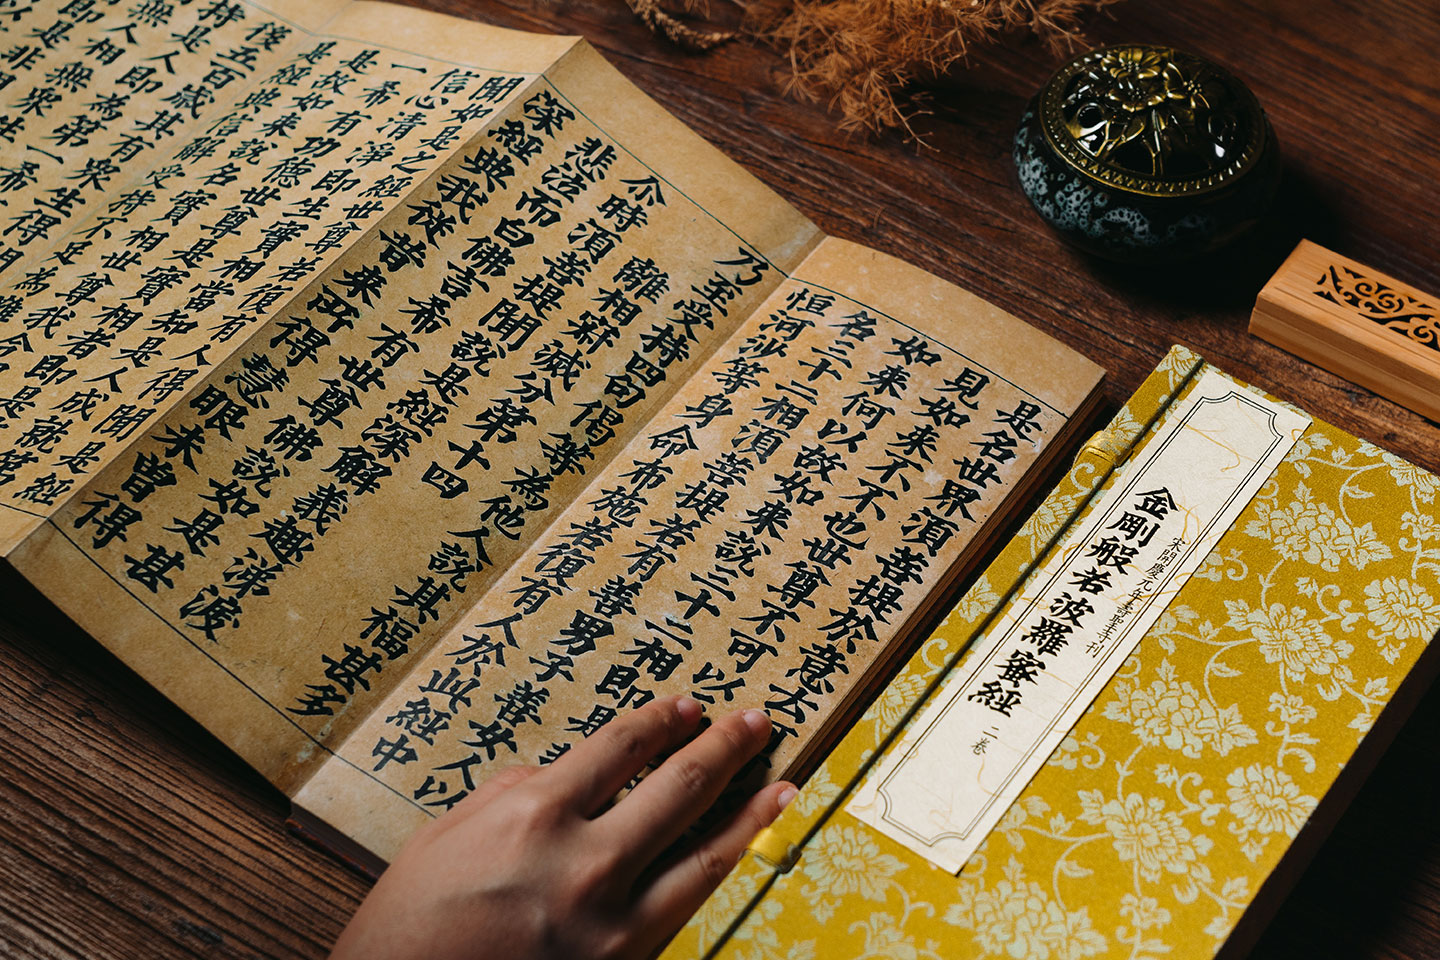 是名世界湏菩提於意云
見如來不不也世尊不可以
如來何以故如來說三十二相即是
名三十二相湏菩提若有善男子善女人以
恒河沙等身命布施若復有人於此經中
乃至受持四句偈等為他人說其福甚多
離相寂滅分第十四
尒時湏菩提聞說是經深解義趣涕淚
悲泣而白佛言希有世尊佛說如是甚
深經典我從昔來所得慧眼未曾得
聞如是之經世尊若復有人得聞是經
信心清淨即生實相當知是人成就第
一希有功德世尊是實相者即是
是故如來說名實相世尊我今
是經典信解受持不足為難
後五百歲其有眾生得聞
持是人即為第一希
無人相無眾生
金剛般若波羅蜜經 二卷
宋開慶元年壽聖寺刊